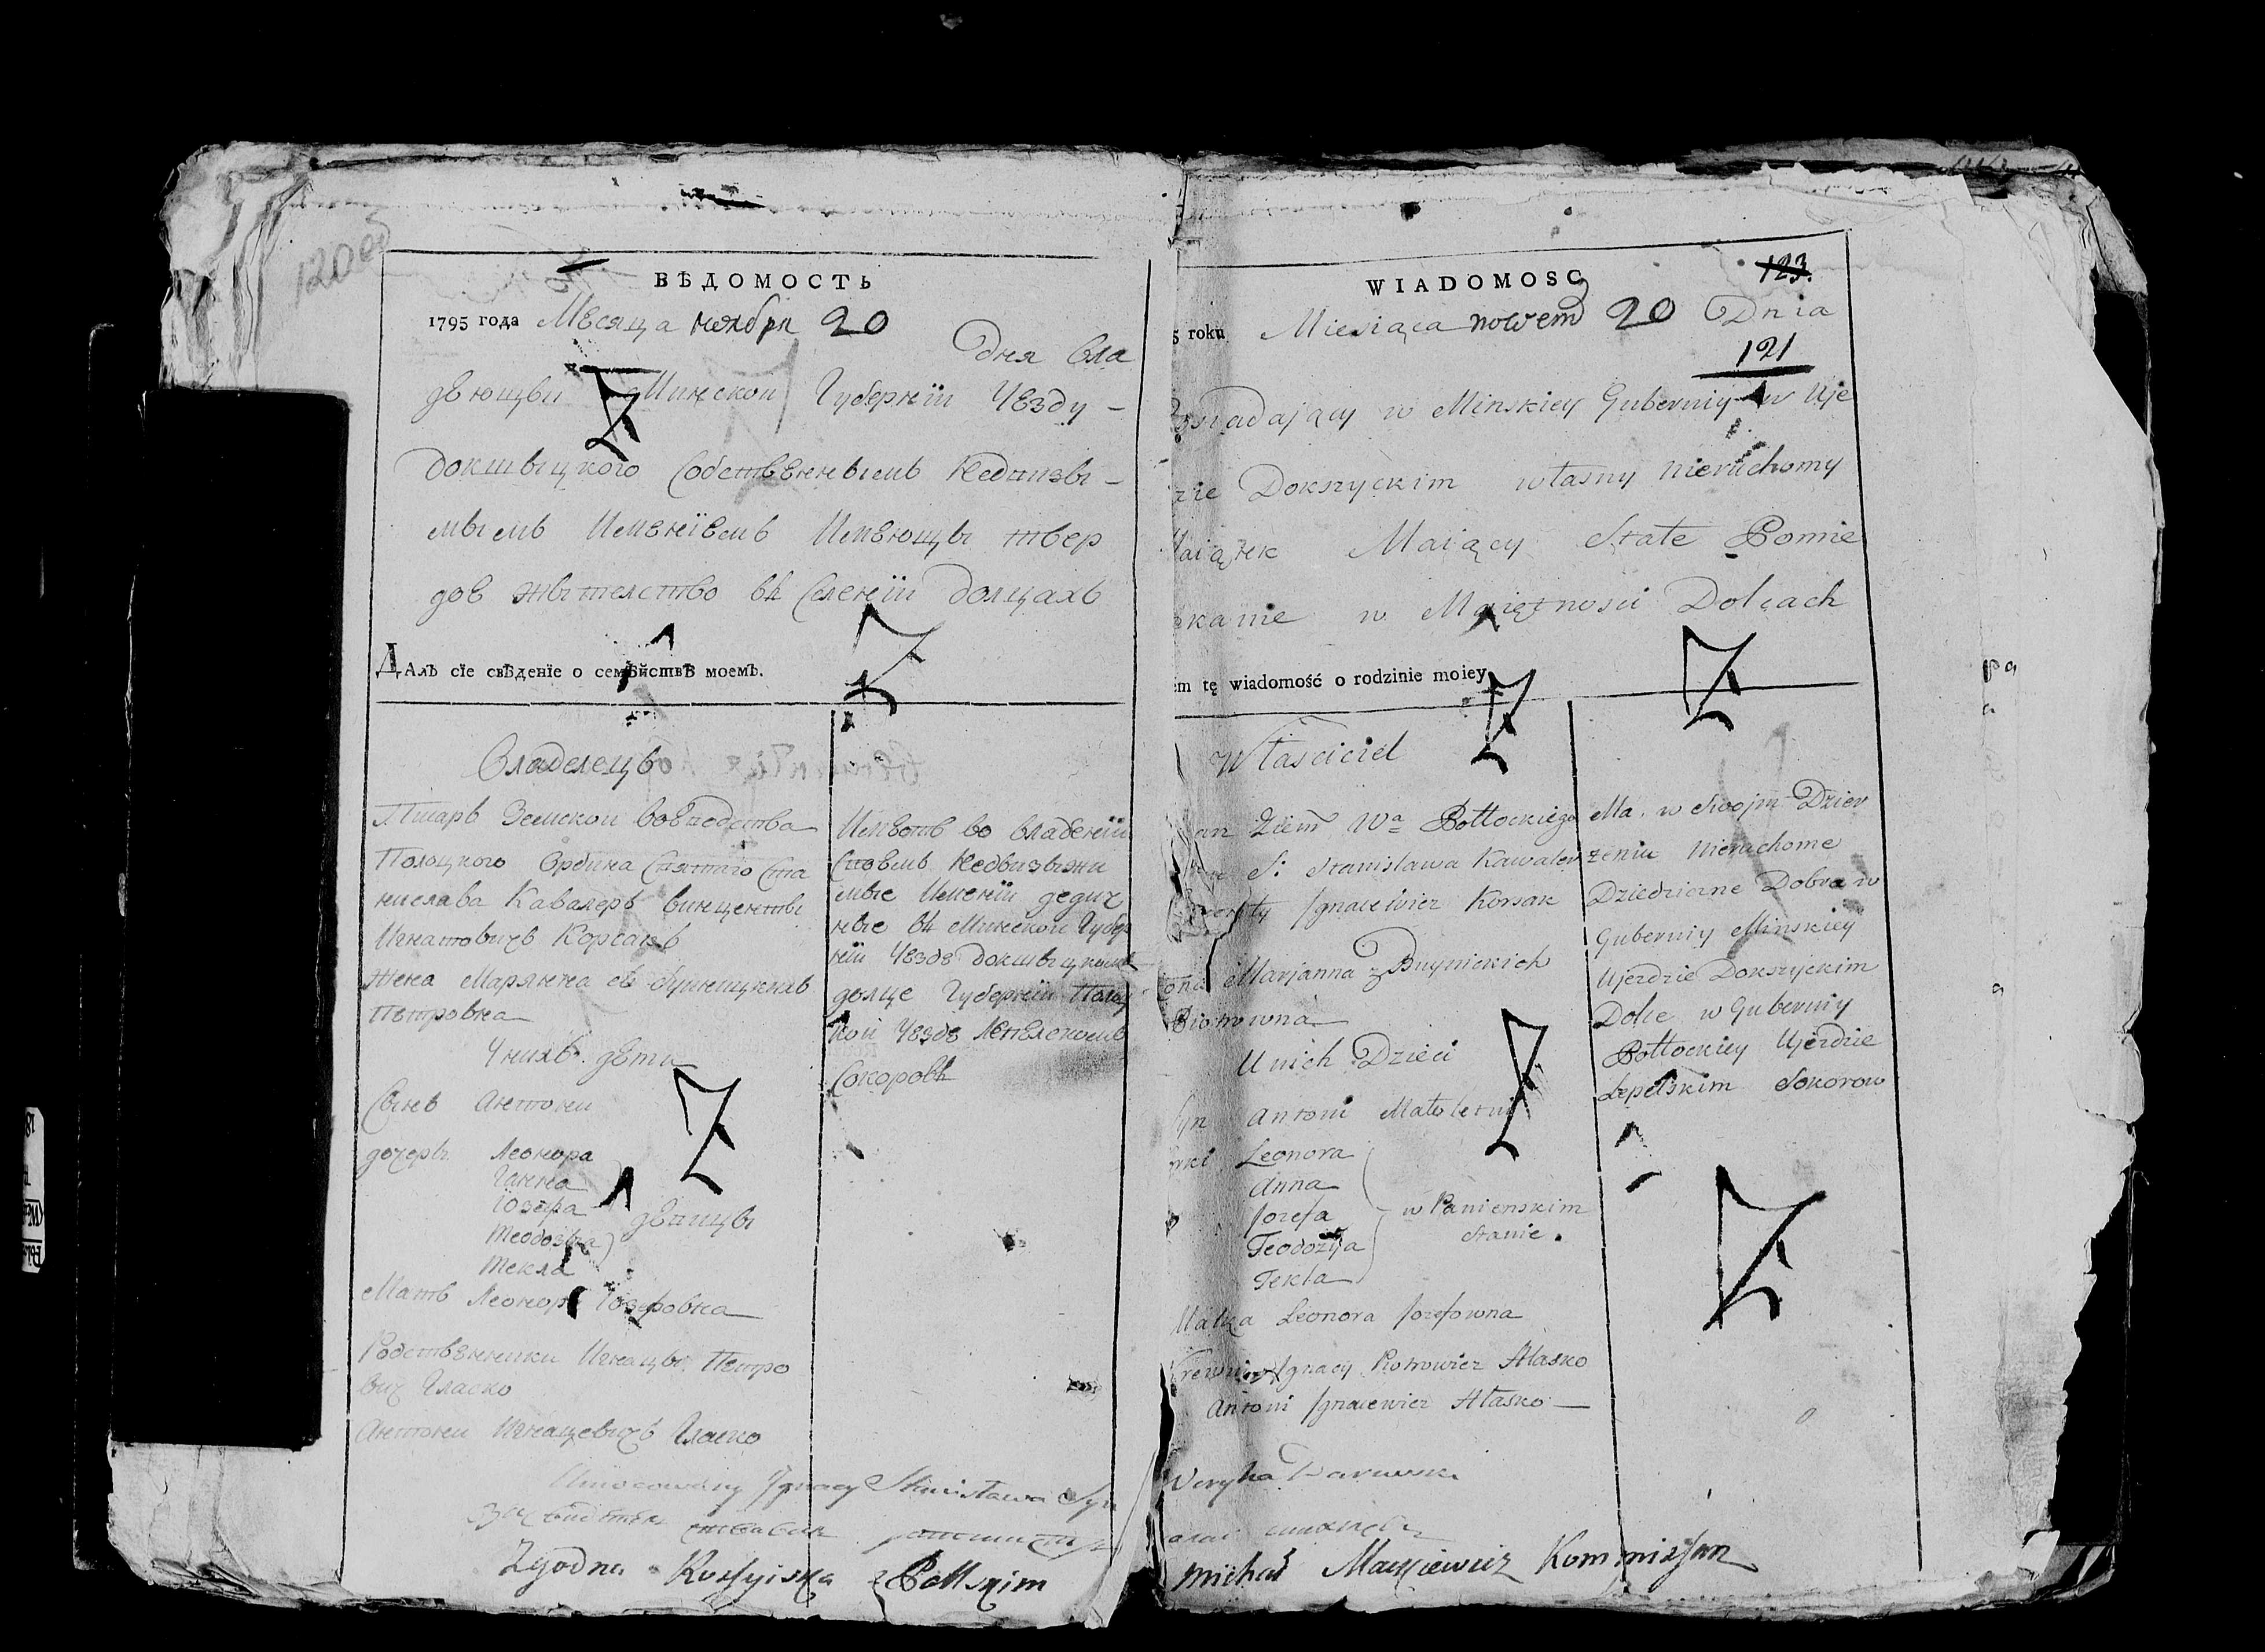 1200б
ВѢДОМОСТЬ
1795 года Мѣсяца ноября 20
Дня Вла
дѣющви Минской Губернїи Уѣзду –
Докшыцкого Собственнымъ Недвизы –
мымъ Именїемъ Имѣющы твер
дое жытелство въ Селенїи Долцахъ
Далъ сїе свѣденїе о семѣйствѣ моемъ.
Владелецъ
Писаръ Земскои Воеводства
Полоцкого Ордина Святаго Ста
нислава Кавалеръ Винценты
Игнатовичъ Корсакъ
Жена Марянна съ
Петровна
У нихъ дети
Сынъ Антони
дочеръ Леонора
Ганна
Їозефа
Теодозыа
Текла
девицы
Мать Леонора Їозефовна
Родственники Игнацы Петро
вич Гласко
Антони Игнацевичъ Гласко
Имѣетъ во владенїи
Своемъ Недвизызи
мые Именїи дедич
ные въ Минской Губер
нїи Уезде Докшыцкомъ
долце Губернїи Полоц
кой Уезде Лепелскомъ
Сокоровъ
Umocowany Ignacy Stanisława Syn
Zgodna Rossyiska z Polskim
WIADOMOSC
123.
5 roku Miesiąca nowem 20 Dnia
121
Posiadający w Minskiey Guberniy w Uje
zdzie Dokszyckim własny Nieruchomy
Maiątek Maiący Stałe Pomie
szkanie w Maiętnosci Dolcach
em tę wiadomość o rodzinie moiey
Własciciel
Ziem Wa Połłockiego
S: Stanisława Kawaler
Ignacewicz Korsak
Żona Marjanna z Buynickich
Piotrowna
U nich Dzieci
Syn Antoni Małoletni
Leonora
Anna
Jozefa
Teodozyja
Tekla
w Panienskim
stanie.
Matka Leonora Jozefowna
Krewni Ignacy Piotrowicz Hłasko
Antoni Ignacewicz Hłasko
Ma, w Swojm Dzier
żeniu Nieruchome
Dziedziczne Dobra w
Guberniy Minskiey
Ujezdzie Dokszyckim
Dolce w Guberniy
Połłockiey Ujezdzie
Lepelskim Sokorow
Weryha Darewski
Michał Mackiewicz Kommissarz